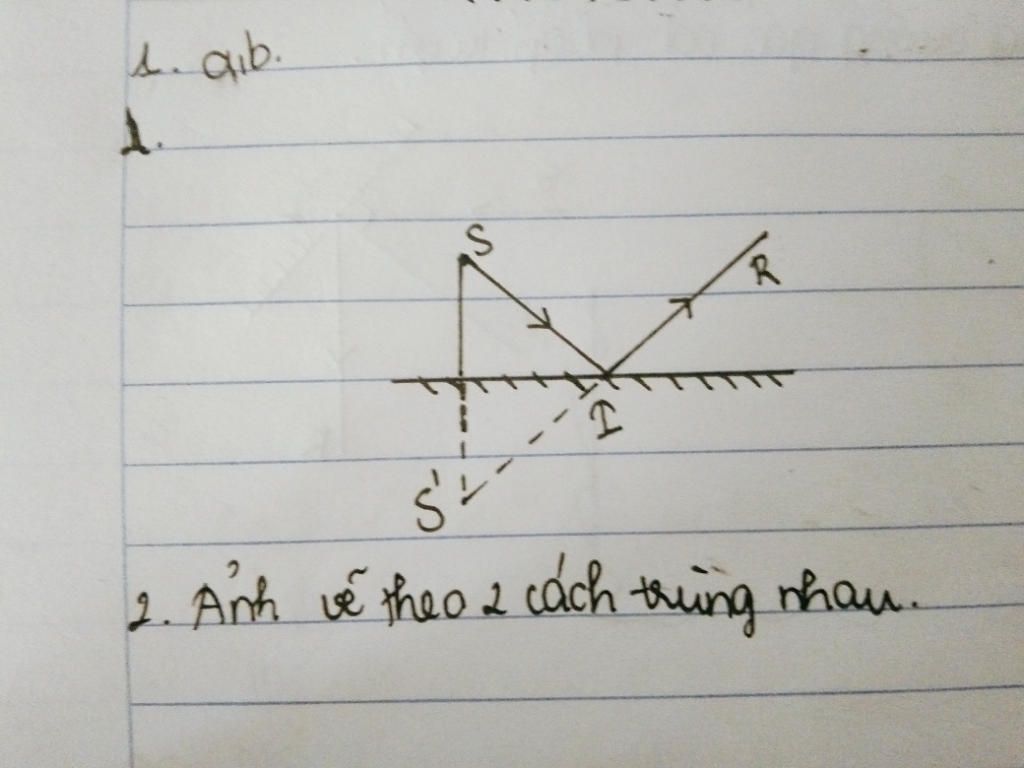 1. a,b.
1.
S
R
I
S'
2. Ảnh vẽ theo 2 cách trùng nhau.